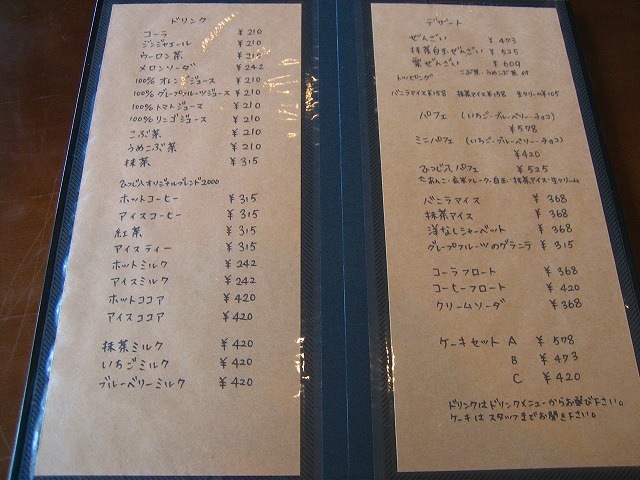 ドリンク
コーラ ¥210
ジンジャエール ¥210
ウーロン茶 ¥210
メロンソーダ ¥242
100% オレンジジュース ¥210
100% グレープフルーツジュース ¥210
100% トマトジュース ¥210
100% リンゴジュース ¥210
こぶ茶 ¥210
うめこぶ茶 ¥210
抹茶 ¥315
ひつじ入オリジナルブレンド2000
ホットコーヒー ¥315
アイスコーヒー ¥315
紅茶 ¥315
アイスティー ¥315
ホットミルク ¥242
アイスミルク ¥242
ホットココア ¥420
アイスココア ¥420
抹茶ミルク ¥420
いちごミルク ¥420
ブルーベリーミルク ¥420
デザート
ぜんざい ¥473
抹茶白玉ぜんざい ¥525
栗ぜんざい ¥609
こぶ茶・うめこぶ茶 付
トッピング
バニラアイス¥158 抹茶アイス¥158 生クリーム¥105
パフェ (いちご・ブルーベリー・チョコ)
¥578
ミニパフェ (いちご・ブルーベリー・チョコ)
¥420
ひつじ入パフェ ¥525
あんこ・玄米フレーク・白玉・抹茶アイス・生クリーム
バニラアイス ¥368
抹茶アイス ¥368
洋なしシャーベット ¥368
グレープフルーツのグラニテ ¥315
コーラフロート ¥368
コーヒーフロート ¥420
クリームソーダ ¥368
ケーキセット A ¥578
B ¥473
C ¥420
ドリンクはドリンクメニューからお選び下さい。
ケーキは スタッフまでお聞き下さい。